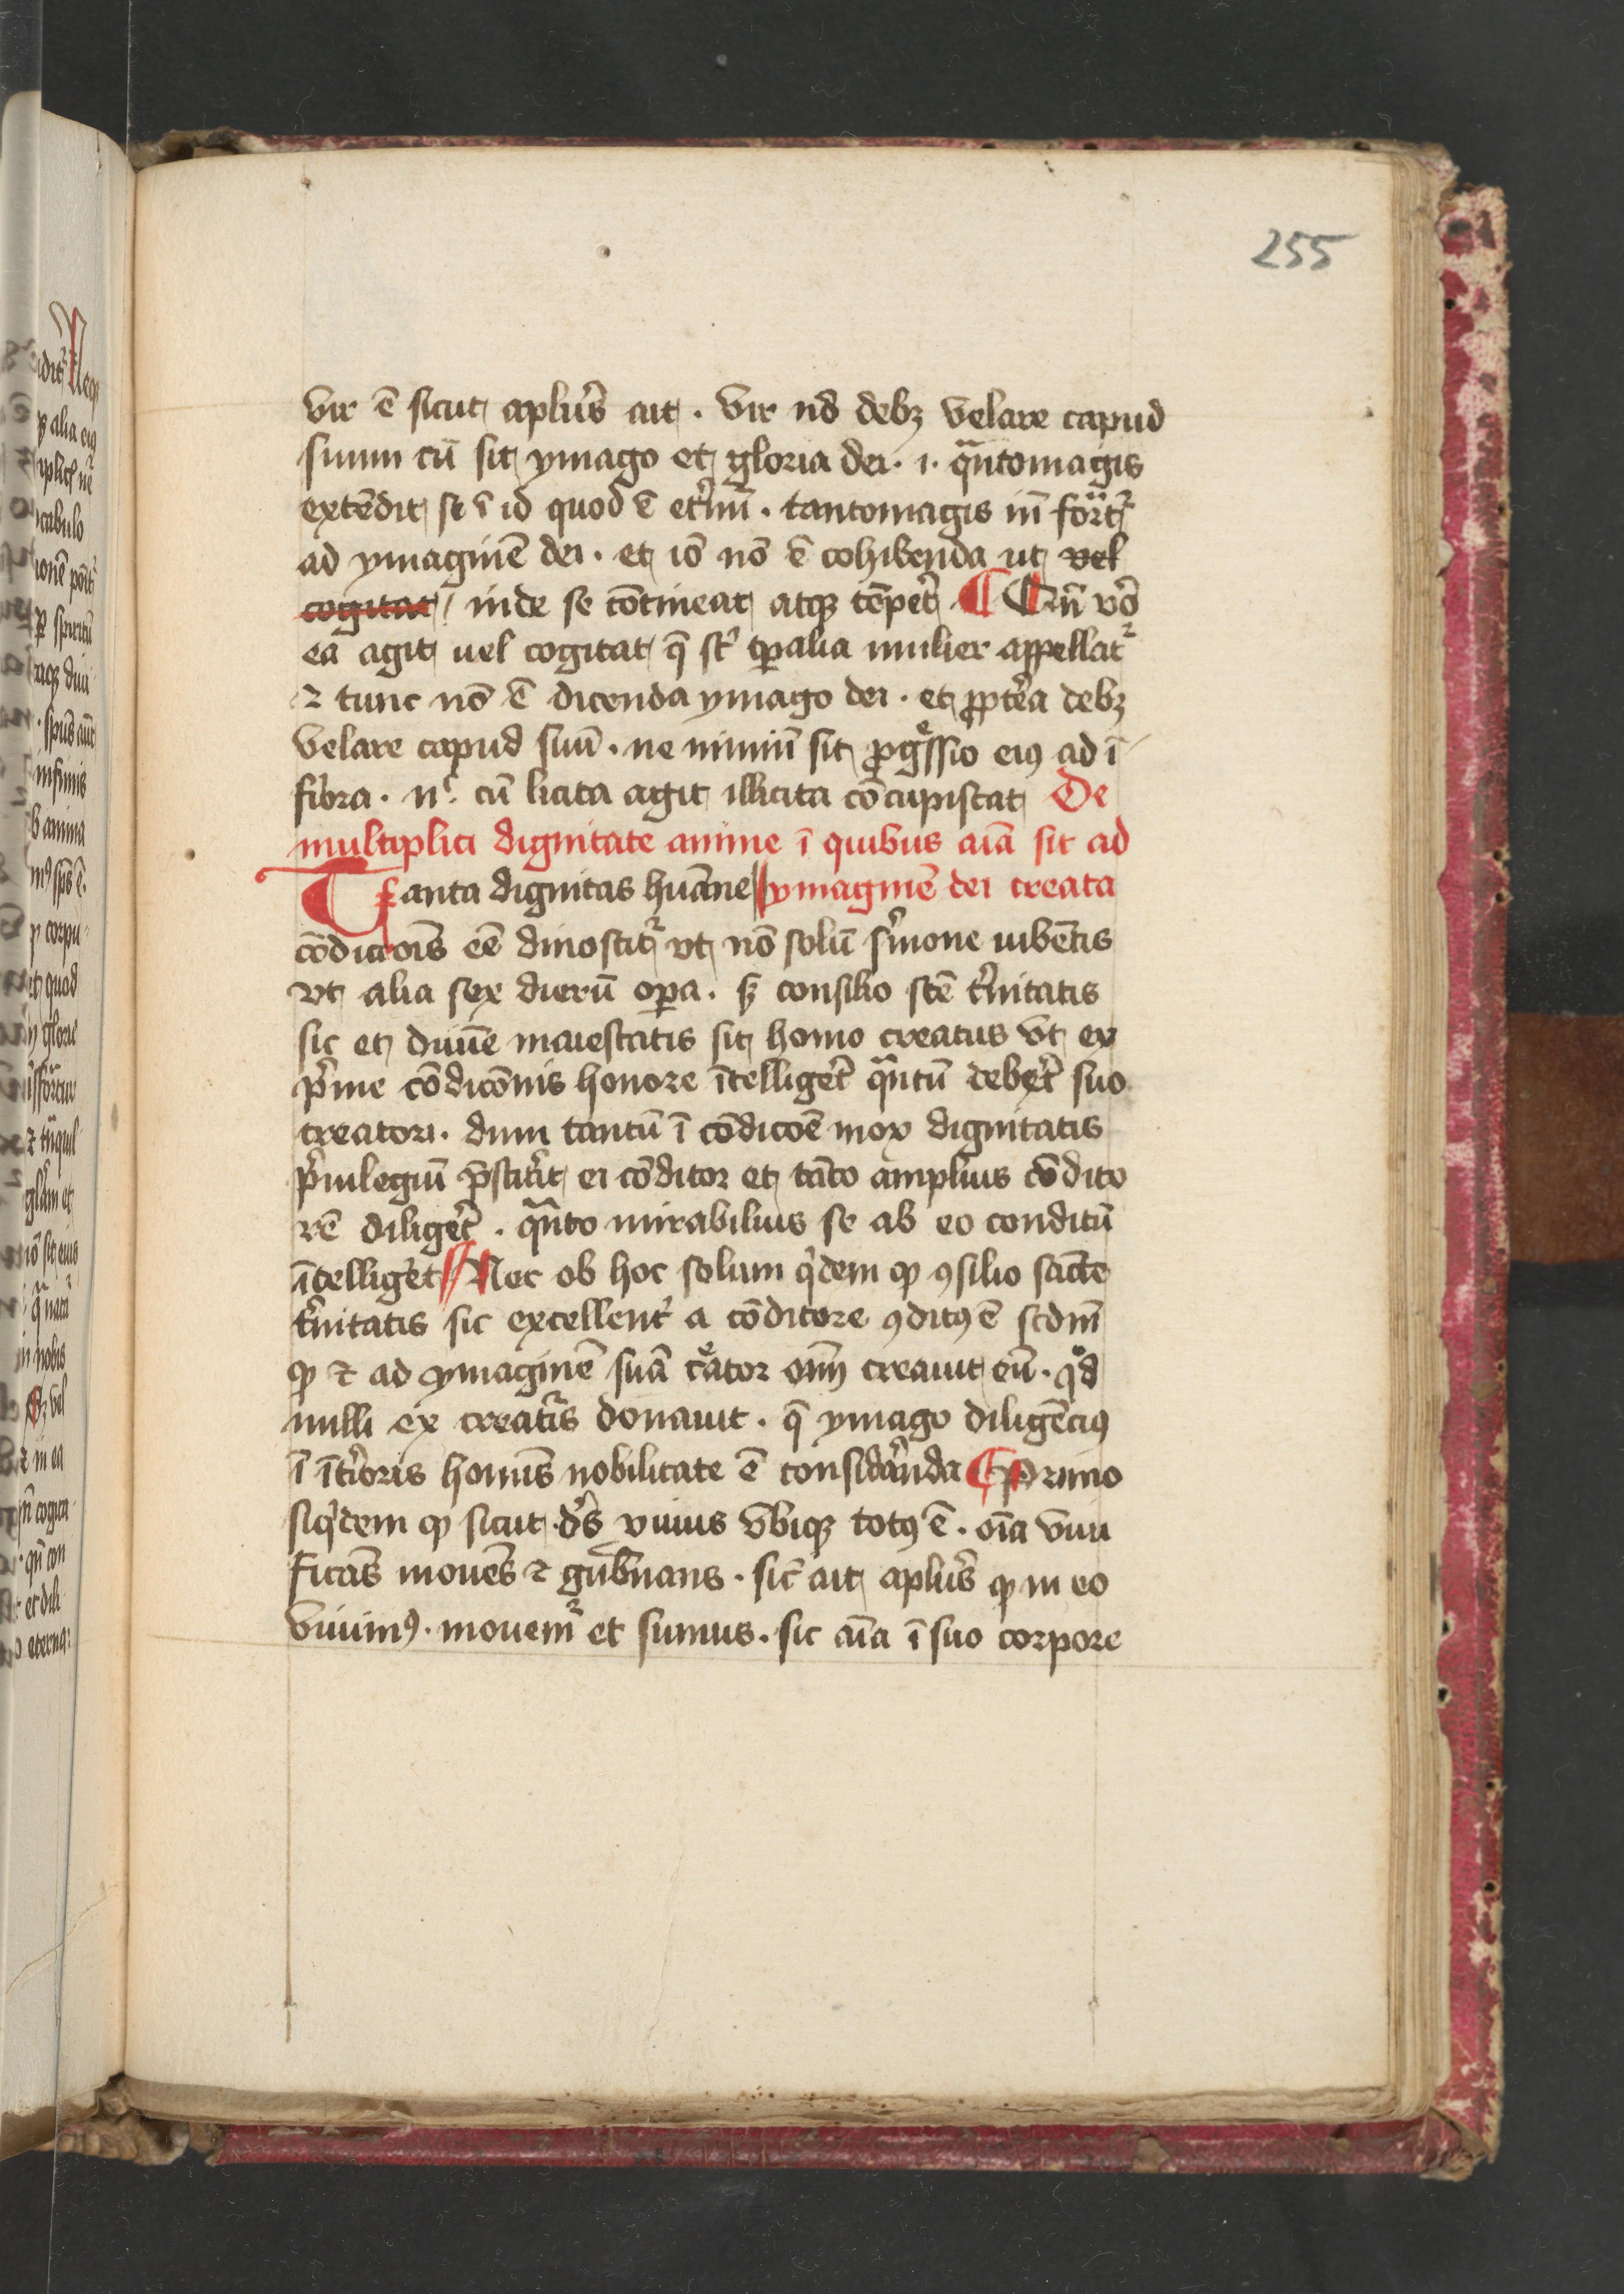 255
vir ē sicut aplūs ait . vir nō debꝫ velare capud
suum cū sit ymago et gloria dei . i . qͣntomagis
extēdit se ī id quod ē etͬnū . tantomagis īn formatᷣ
ad ymaginē dei . et iō nō ē cohibenda ut vel
cogitat inde se cōtineat atqꝫ tēpet̉ ¶ Cū v̊o
ea agit uel cogitat q̄ st̉ tꝑalia mulier appellatᷣ
⁊ tunc nō ē dicenda ymago dei . et ꝓpterea debꝫ
velare capud suū . ne nimiū sit ꝓgͤssio eiꝰ ad ī
feriora . n̄ cū licita agit illicita cōcupiscat De
multiplici dignitate anime ī quibus aīa sit ad
Tanta dignitas huāne ymaginē dei creata
cōdicōis eē dinoscitᷣ vt nō solū s̉mone iubētis
vt alia sex dierū oꝑa . sꝫ consilio scē t̉nitatis
sic et diuīe maiestatis sit homo creatus vt ex
p̉me cōdicōnis honore ītelliget̉ qͣntū deb̉et suo
creatori . dum tantū ī cōdicōe mox dignitatis
p̉uilegiū p̄stit̉it ei cōditor et tāto amplius cōdito
rē diliget̉ . qͣnto mirabilius se ab eo conditū
ītelliget̉ Nec ob hoc solum qͥdem ꝙ ꝯsilio sancte
t̉nitatis sic excellent̉ a cōditore ꝯditꝰ ē scdm̄
ꝙ ⁊ ad ymaginē suā cͤator oīm creauit eū . qͦd
nulli ex creatᷣis donauit . q̄ ymago diligēciꝰ
ī īt̉ioris homīs nobilitate ē considānda ¶ Primo
siqͥdem ꝙ sicut dˢ vnius vbiqꝫ totꝰ ē . oīa viui
ficās mouēs ⁊ gub̉nans . sic̄ ait aplūs ꝙ in eo
viuimꝰ . mouemᷣ et sumus . sic aīa ī suo corpore